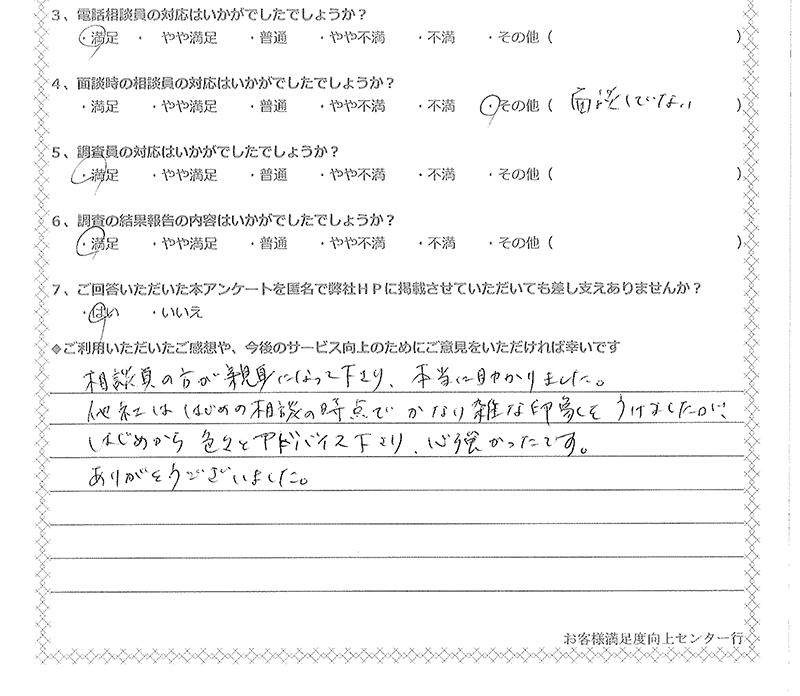 3、電話相談員の対応はいかがでしたでしょうか？
・満足 ・ やや満足 ・普通 ・やや不満 ・不満 ・その他（ ）
4、面談時の相談員の対応はいかがでしたでしょうか？
・満足 ・やや満足 ・普通 ・やや不満 ・不満 ・その他（ 面談していない ）
5、調査員の対応はいかがでしたでしょうか？
・満足 ・やや満足 ・普通 ・やや不満 ・不満 ・その他（ ）
6、調査の結果報告の内容はいかがでしたでしょうか？
・満足 ・やや満足 ・普通 ・やや不満 ・不満 ・その他（ ）
7、ご回答いただいた本アンケートを匿名で弊社ＨＰに掲載させていただいても差し支えありませんか？
・はい ・いいえ
◆ご利用いただいたご感想や、今後のサービス向上のためにご意見をいただければ幸いです
相談員の方が親身になって下さり、本当に助かりました。
他社ははじめの相談の時点でかなり雑な印象をうけましたが、
はじめから色々とアドバイス下さり、心強かったです。
ありがとうございました。
お客様満足度向上センター行